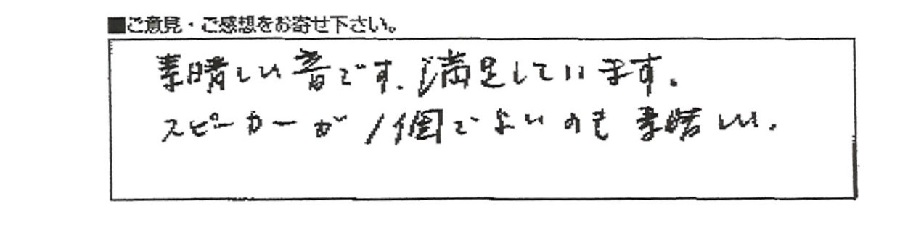 ■ご意見・ご感想をお寄せ下さい。
素晴しい音です。満足しています。
スピーカーが1個でよいのも素晴しい。